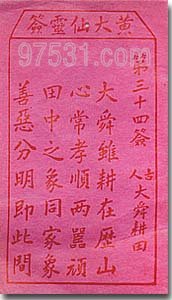 黃大仙靈簽
97531.com
第三十四簽
古人大舜耕田
大舜雖耕在歷山
心常孝順两嚚頑
田中之象同家象
善惡分明即此間